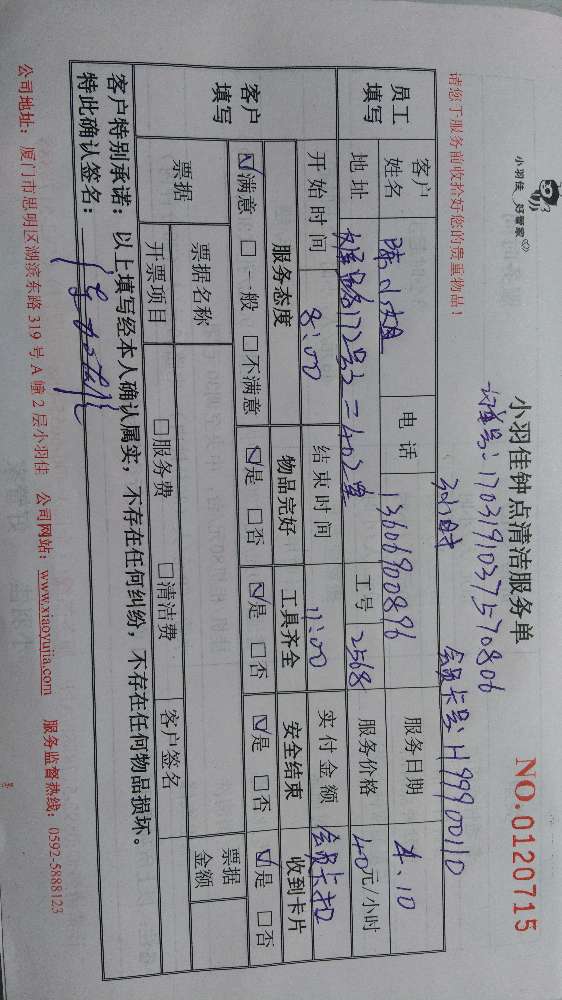 小羽佳 好管家
小羽佳钟点清洁服务单
NO.0120715
1703191037570806
请您于服务前收拾好您的贵重物品！
3小时
会员卡号:H99900110
员工填写
客户姓名
电话
13606900896
服务日期
4.10
地址
172号
402室
工号
2568
服务价格
40元/小时
开始时间
8:00
结束时间
11:00
实付金额
会员卡扣
客户填写
服务态度
物品完好
工具齐全
安全结束
收到卡片
☑满意 □一般 □不满意
☑是 □否
☑是 □否
☑是 □否
☑是 □否
票据
票据名称
票据金额
开票项目
□服务费
□清洁费
客户签名
客户特别承诺：以上填写经本人确认属实，不存在任何纠纷，不存在任何物品损坏。
特此确认签名：
公司地址：厦门市思明区湖滨东路 319 号 A 幢 2 层小羽佳 公司网站：www.xiaoyujia.com 服务监督热线：0592-5888123